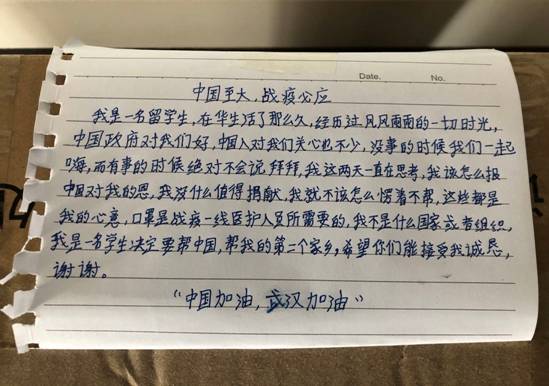 Date. No.
中国至大,战疫必应
我是一名留学生,在华生活了那么久,经历过风风雨雨的一切时光,
中国政府对我们好,中国人对我们关心也不少,没事的时候我们一起
嗨,而有事的时候绝对不会说拜拜,我这两天一直在思考,我该怎么报
中国对我的恩,我没什么值得捐献,我就不该怎么愣着不帮,这些都是
我的心意,口罩是战疫一线医护人员所需要的,我不是什么国家或者组织,
我是一名学生决定要帮中国,帮我的第二个家乡,希望你们能接受我诚恳,
谢谢。
“中国加油,武汉加油”